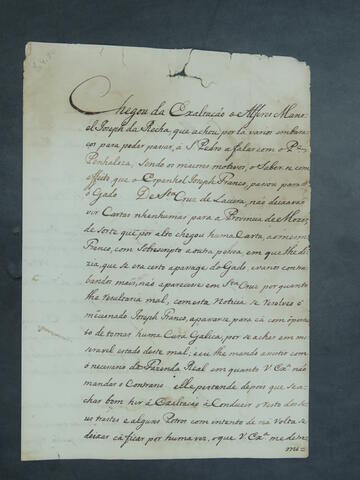 Chegou da Exaltação o Alferes Mano
el Joseph da Rocha, que achou por la varios embara
ços para poder passar, a S. Pedro a falar com o Pe.
Penhaleza, sendo os mesmos motivos, o Saber-se com
effeito que o Espanhol Joseph Franco, passou para
o Gado De Sta. Cruz de La sierra, não deixarão
vir Cartas nenhumas para a Provincia de Moxos
de sorte que por alto chegou huma Carta, ao mesmo
Franco, com Sobrescripto a outra pessoa, em que lhe di
zia, que se era certo a passage do Gado, e varios contra
bandos mais, não aparecesse em Sta. Cruz por quanto
lhe resultaria mal, com esta Noticia se resolveo o
mencionado Joseph Franco, a passar-se para cá com o pente
to de tomar huma Cura Galica, por se achar em mi
seravel estado deste mal; e eu lhe mando assistir com
o necessario da Fazenda Real em quanto V. Exa. não
mandar o Contrario. elle pertende depois que se a
char bom hir á Exaltação à Conduzir o resto dos se
us trastes e alguns Potros com intento de na Volta se
deixar cá ficar por huma vez, o que V. Exa. me deter
mi=